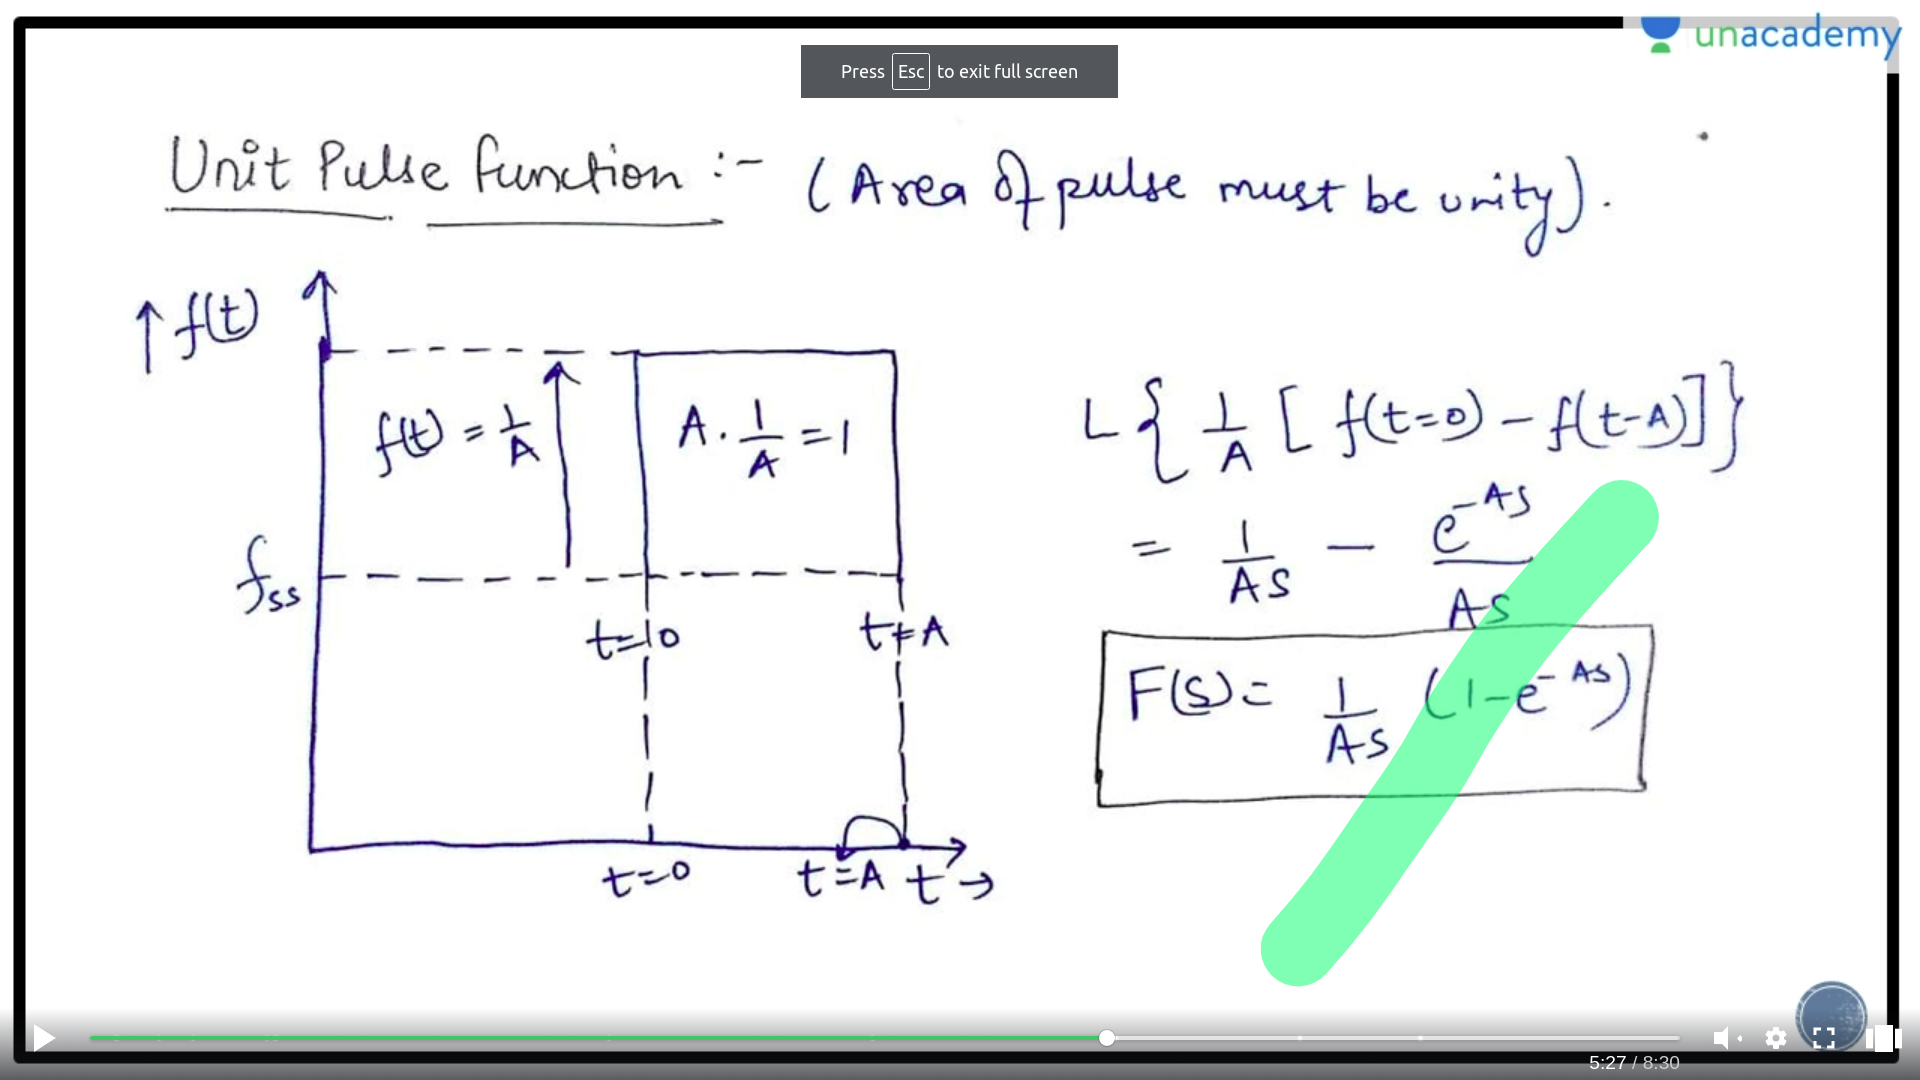 unacademy
Press Esc to exit full screen
Unit Pulse function :- (Area of pulse must be unity).
↑ f(t)
f(t) = 1/A
A · 1/A = 1
fss
t=0
t=A
t=0
t=A
t →
L { 1/A [ f(t=0) - f(t-A) ] }
= 1/AS - e^-AS/AS
F(s) = 1/AS (1-e^-AS)
5:27 / 8:30